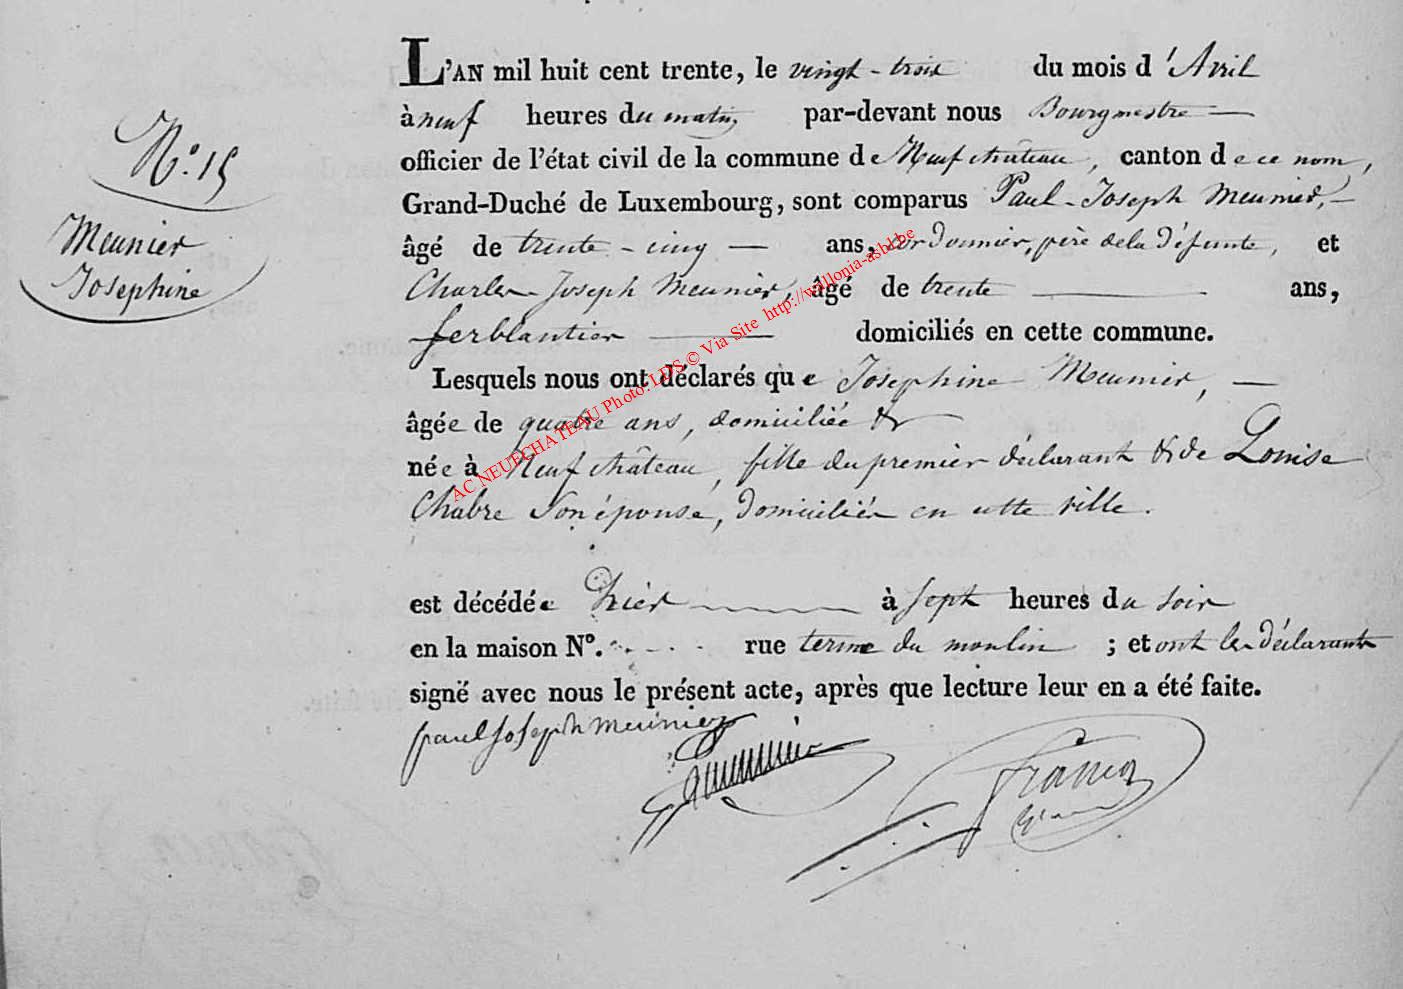 L'AN mil huit cent trente, le vingt-trois du mois d'Avril
à neuf heures du matin, par-devant nous Bourgmestre —
N.° 15
officier de l'état civil de la commune de Neufchâteau, canton de ce nom,
Grand-Duché de Luxembourg, sont comparus Paul-Joseph Meunier, —
Meunier
âgé de trente-cinq — ans, cordonnier, père de la défunte, et
Josephine
Charles-Joseph Meunier, âgé de trente — ans,
ferblantier — domiciliés en cette commune.
Lesquels nous ont déclarés que Josephine Meunier, —
âgée de quatre ans, domiciliée &
née à Neufchâteau, fille du premier déclarant & de Louise
Chabre son épouse, domiciliés en cette ville.
est décédée hier — à sept heures du soir
en la maison N°. - - - - rue terme du moulin ; et ont les déclarants
signé avec nous le présent acte, après que lecture leur en a été faite.
paul joseph meunier
AC NEUFCHATEAU Photo: LDS © Via Site http://wallonia-asbl.be